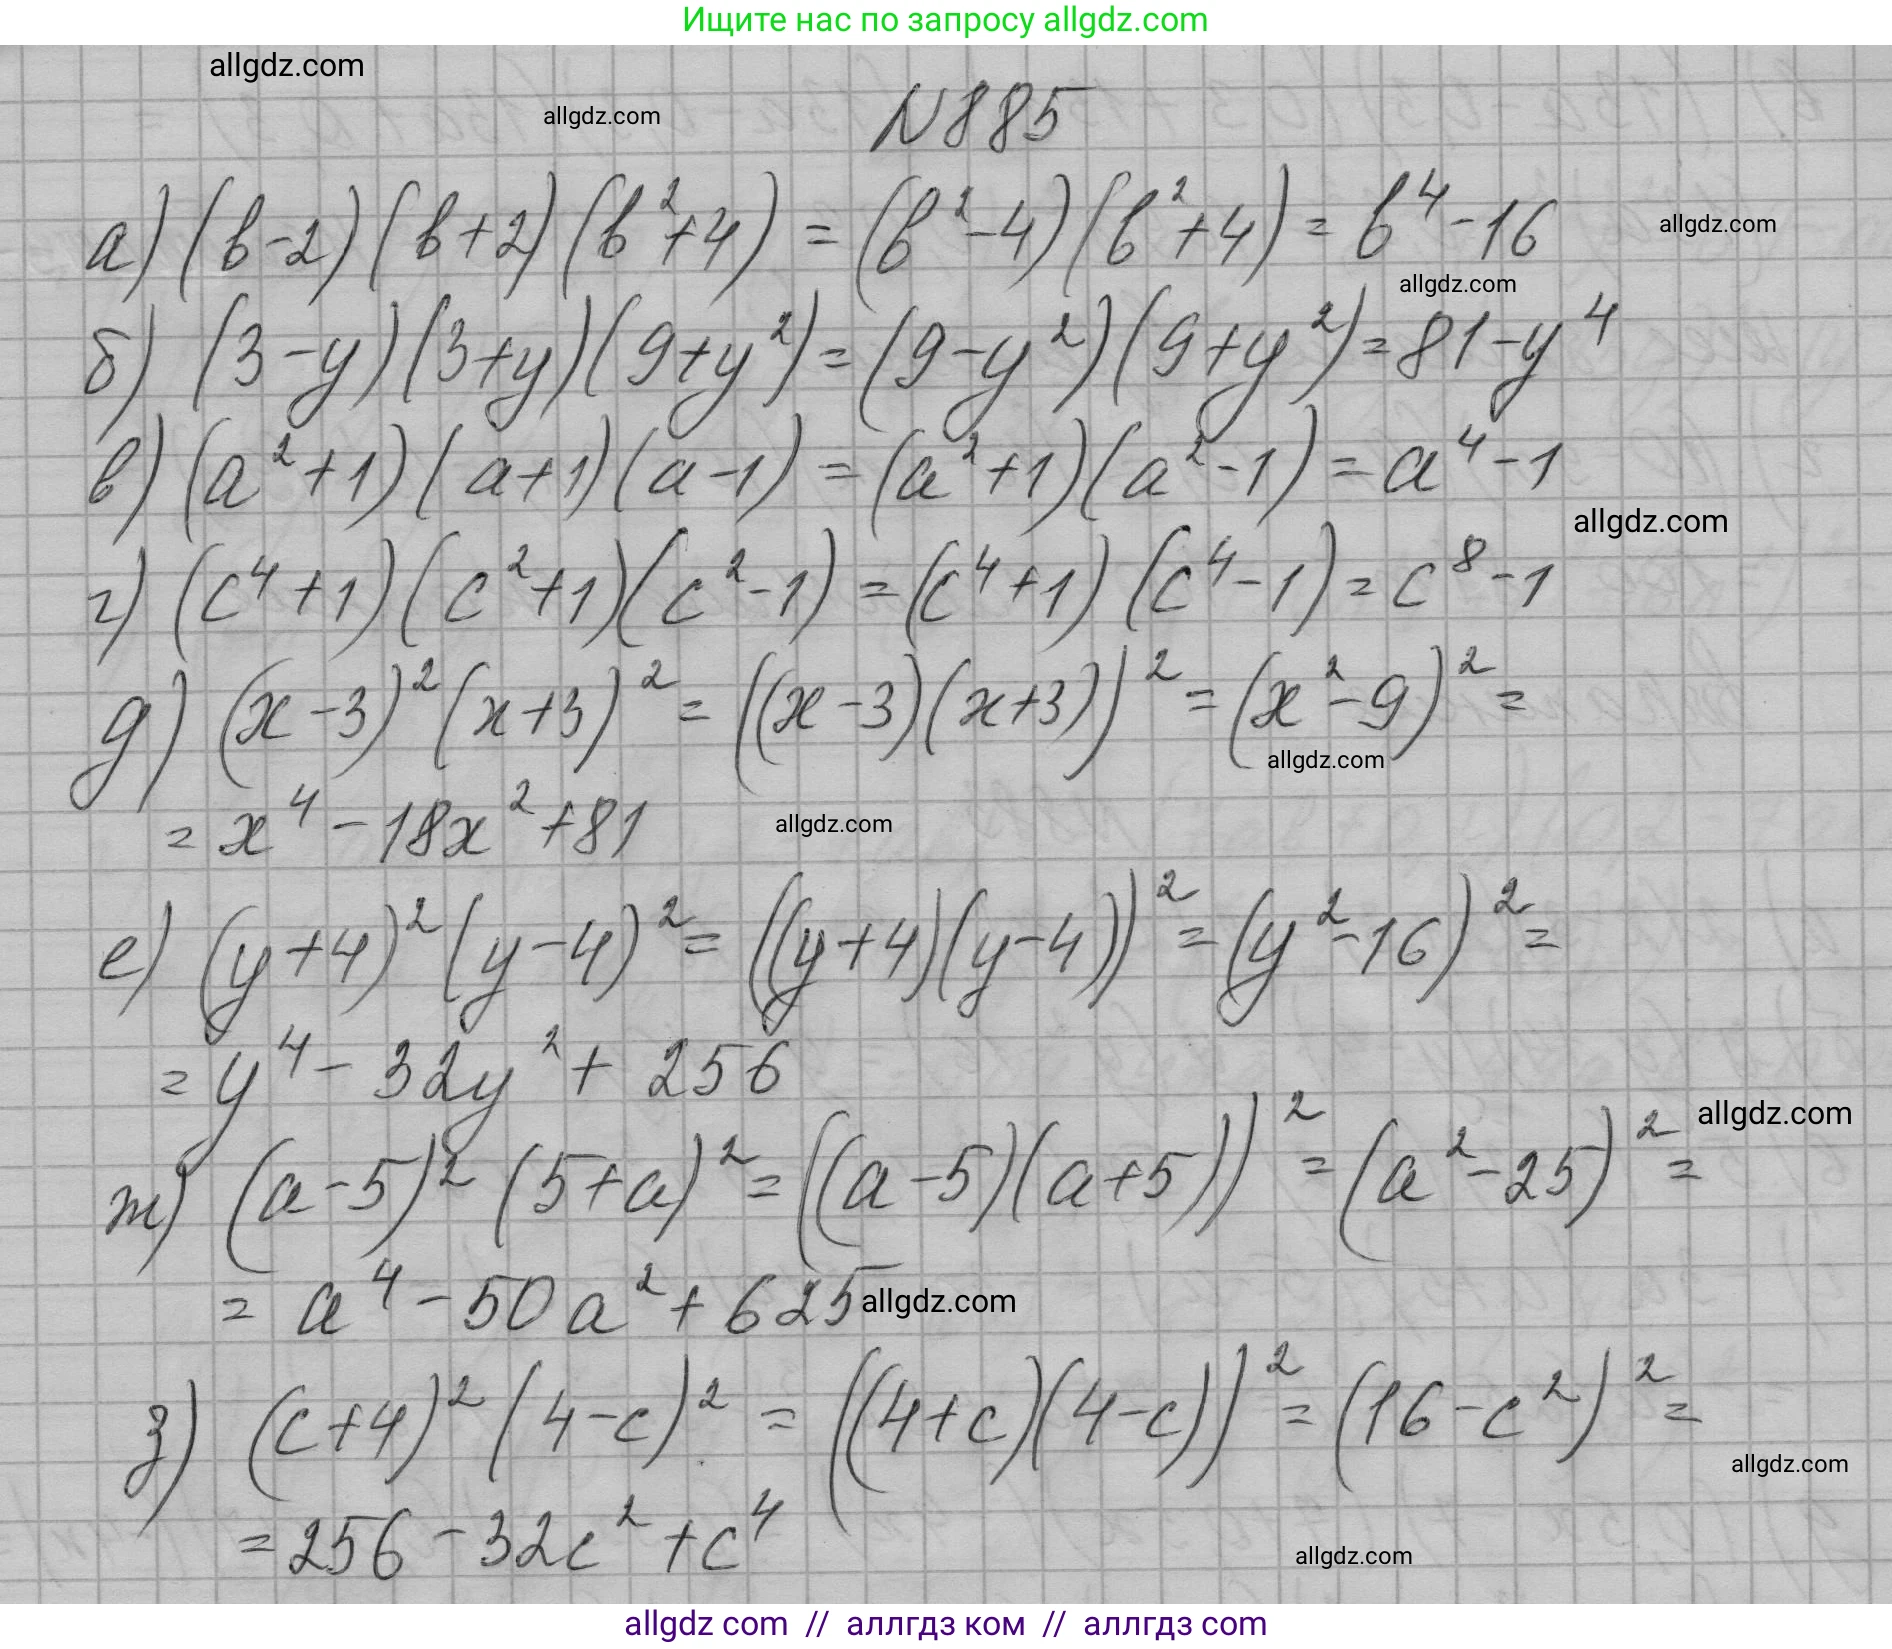 Ищите нас по запросу allgdz.com
allgdz.com
allgdz.com
N885
а) (b-2)(b+2)(b²+4) = (b²-4)(b²+4) = b⁴-16
allgdz.com
allgdz.com
б) (3-y)(3+y)(9+y²) = (9-y²)(9+y²) = 81-y⁴
в) (a²+1)(a+1)(a-1) = (a²+1)(a²-1) = a⁴-1
allgdz.com
г) (c⁴+1)(c²+1)(c²-1) = (c⁴+1)(c⁴-1) = c⁸-1
д) (x-3)²(x+3)² = ((x-3)(x+3))² = (x²-9)² =
allgdz.com
= x⁴-18x²+81
allgdz.com
е) (y+4)²(y-4)² = ((y+4)(y-4))² = (y²-16)² =
= y⁴-32y²+256
allgdz.com
ж) (a-5)²(5+a)² = ((a-5)(a+5))² = (a²-25)² =
= a⁴-50a²+625
allgdz.com
з) (c+4)²(4-c)² = ((4+c)(4-c))² = (16-c²)² =
allgdz.com
= 256-32c²+c⁴
allgdz.com
allgdz com // аллгдз ком // аллгдз com